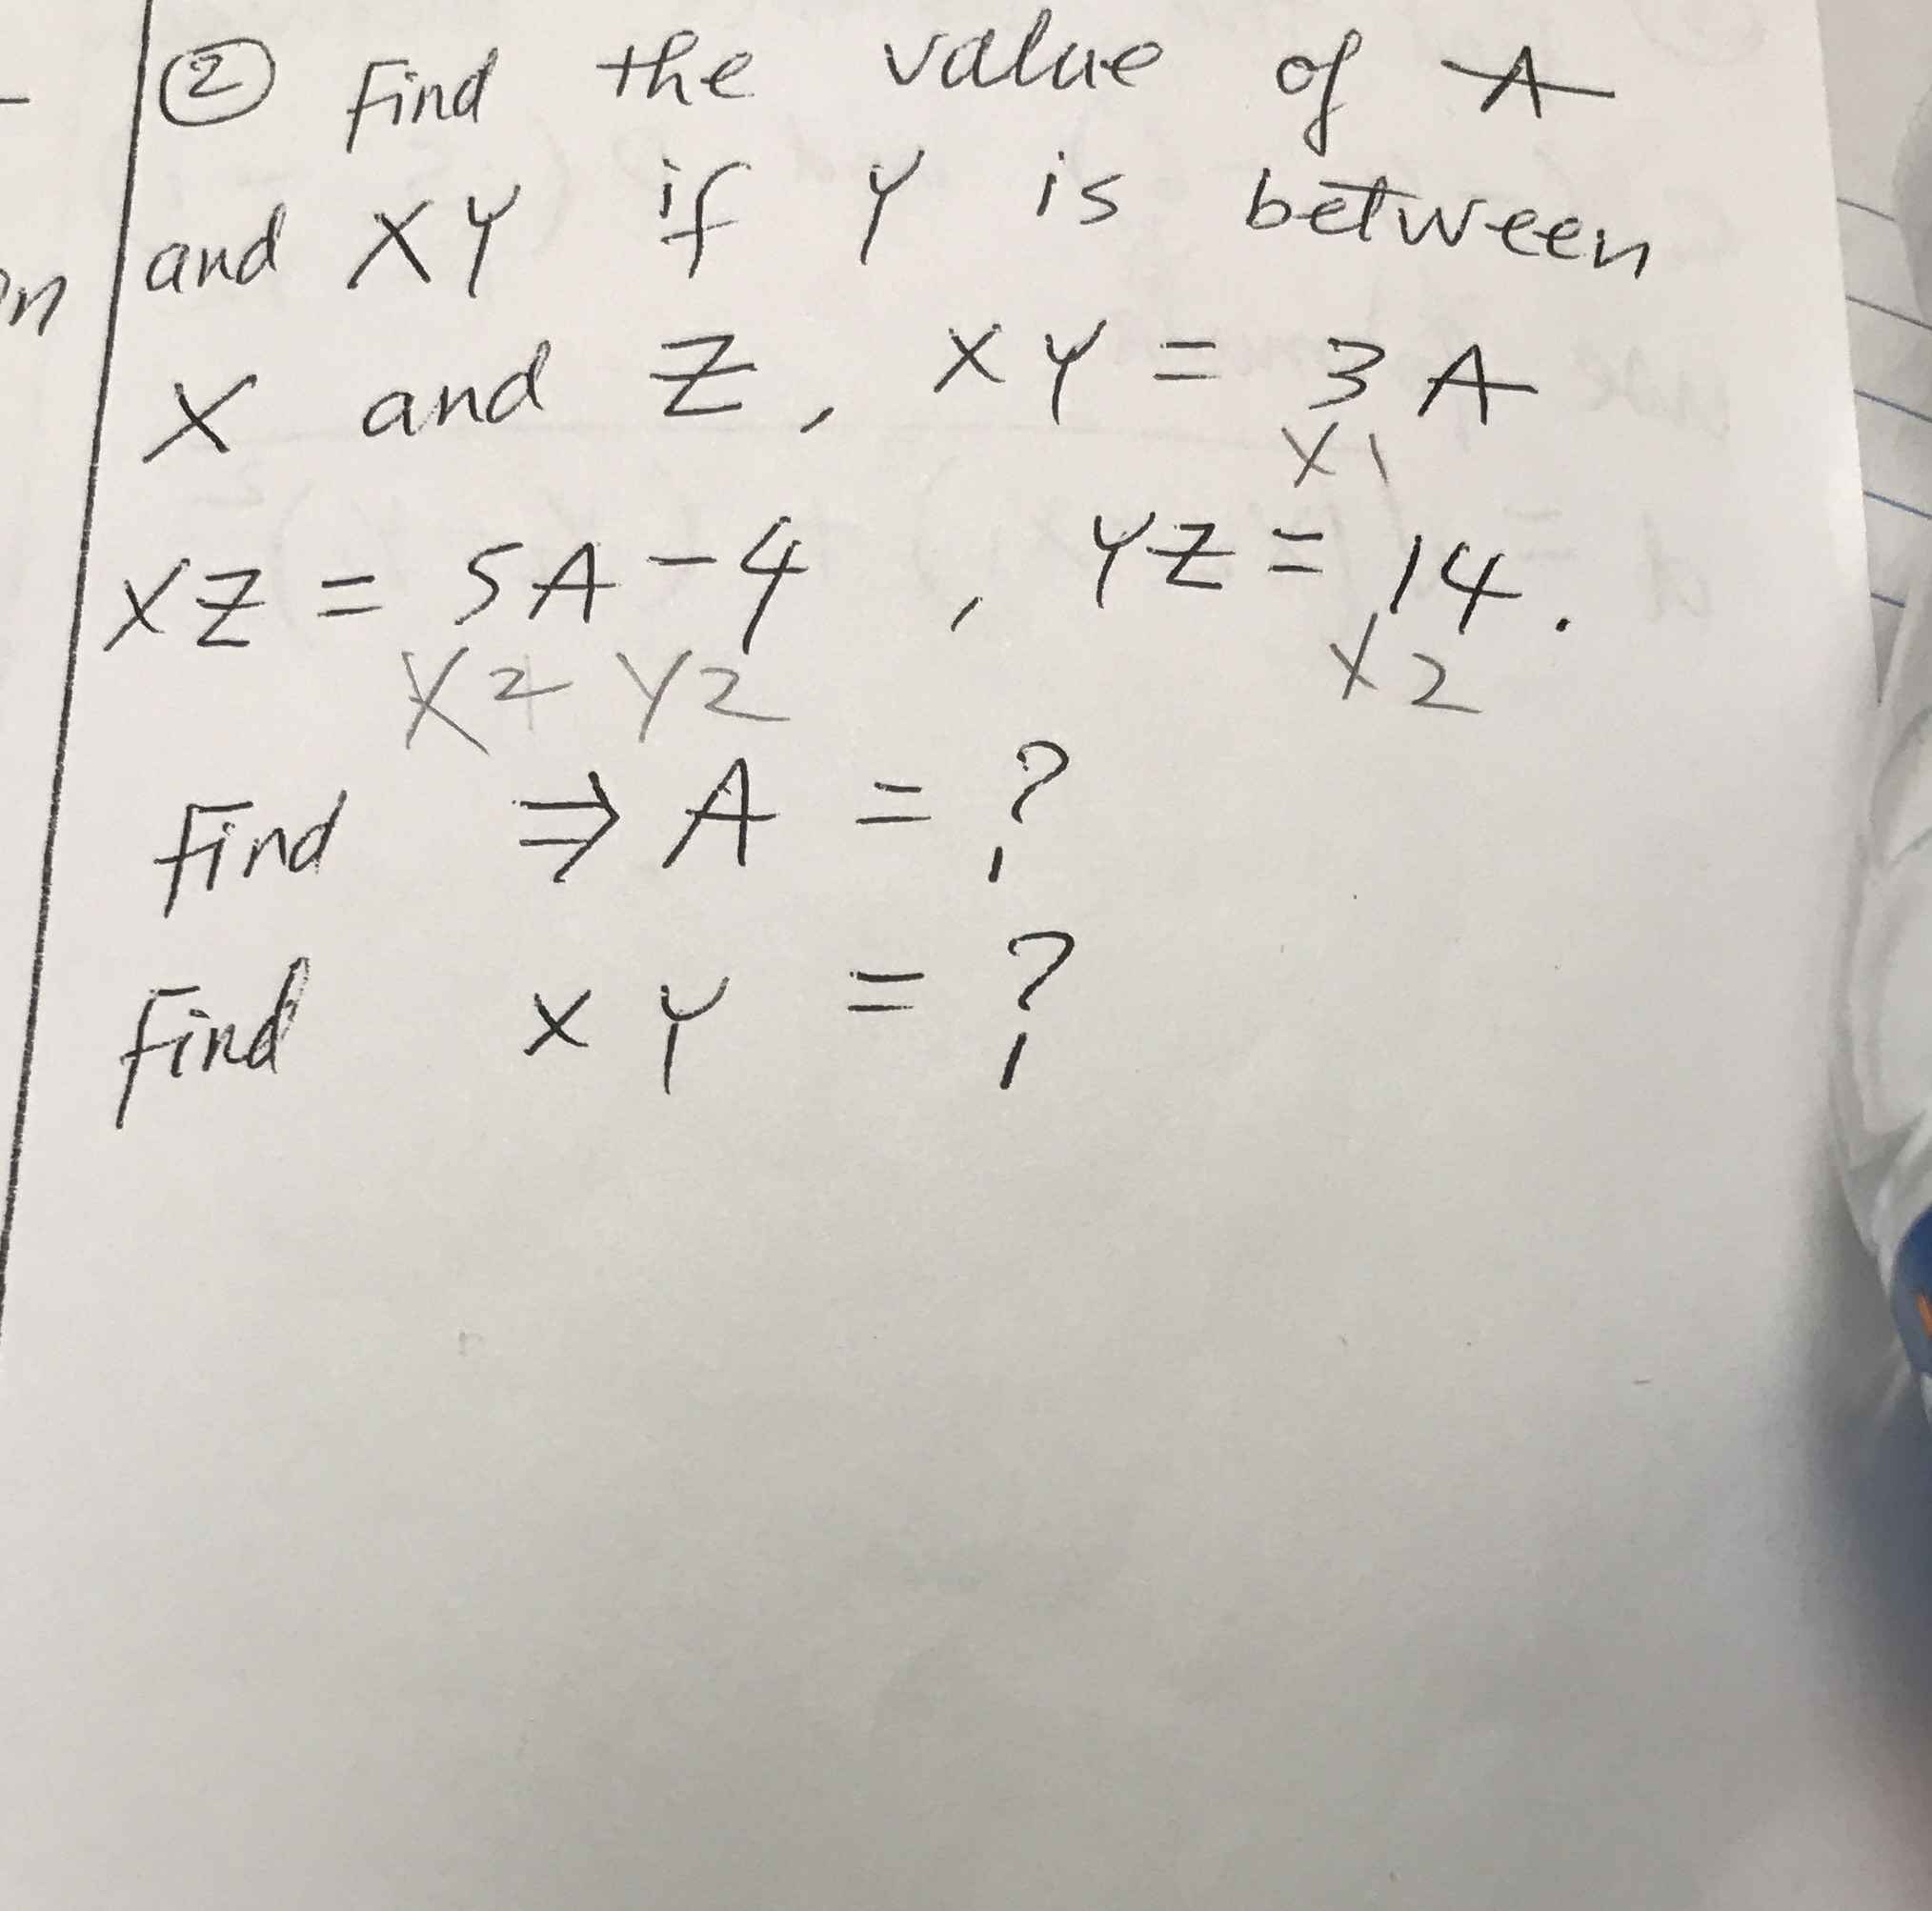 ② Find the value of A
and XY if Y is between
X and Z, XY = 3A
X1
XZ = 5A-4, YZ = 14.
X2 Y2 X2
Find ⇒ A = ?
Find XY = ?